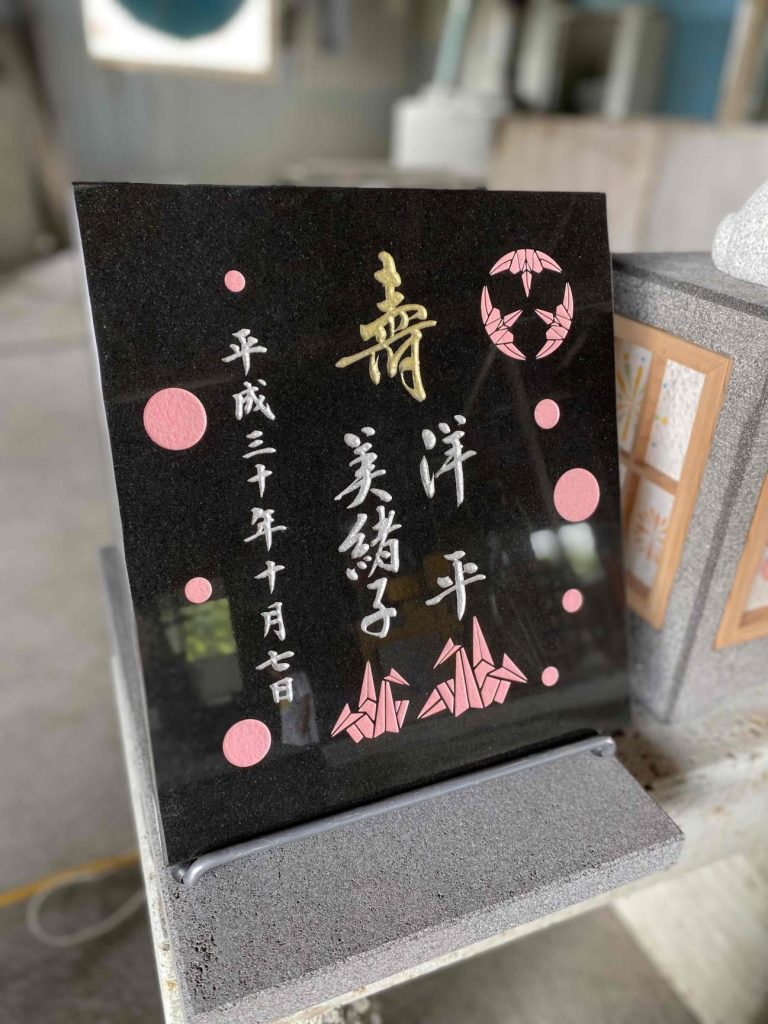 寿
洋平
美緒子
平成三十年十月七日